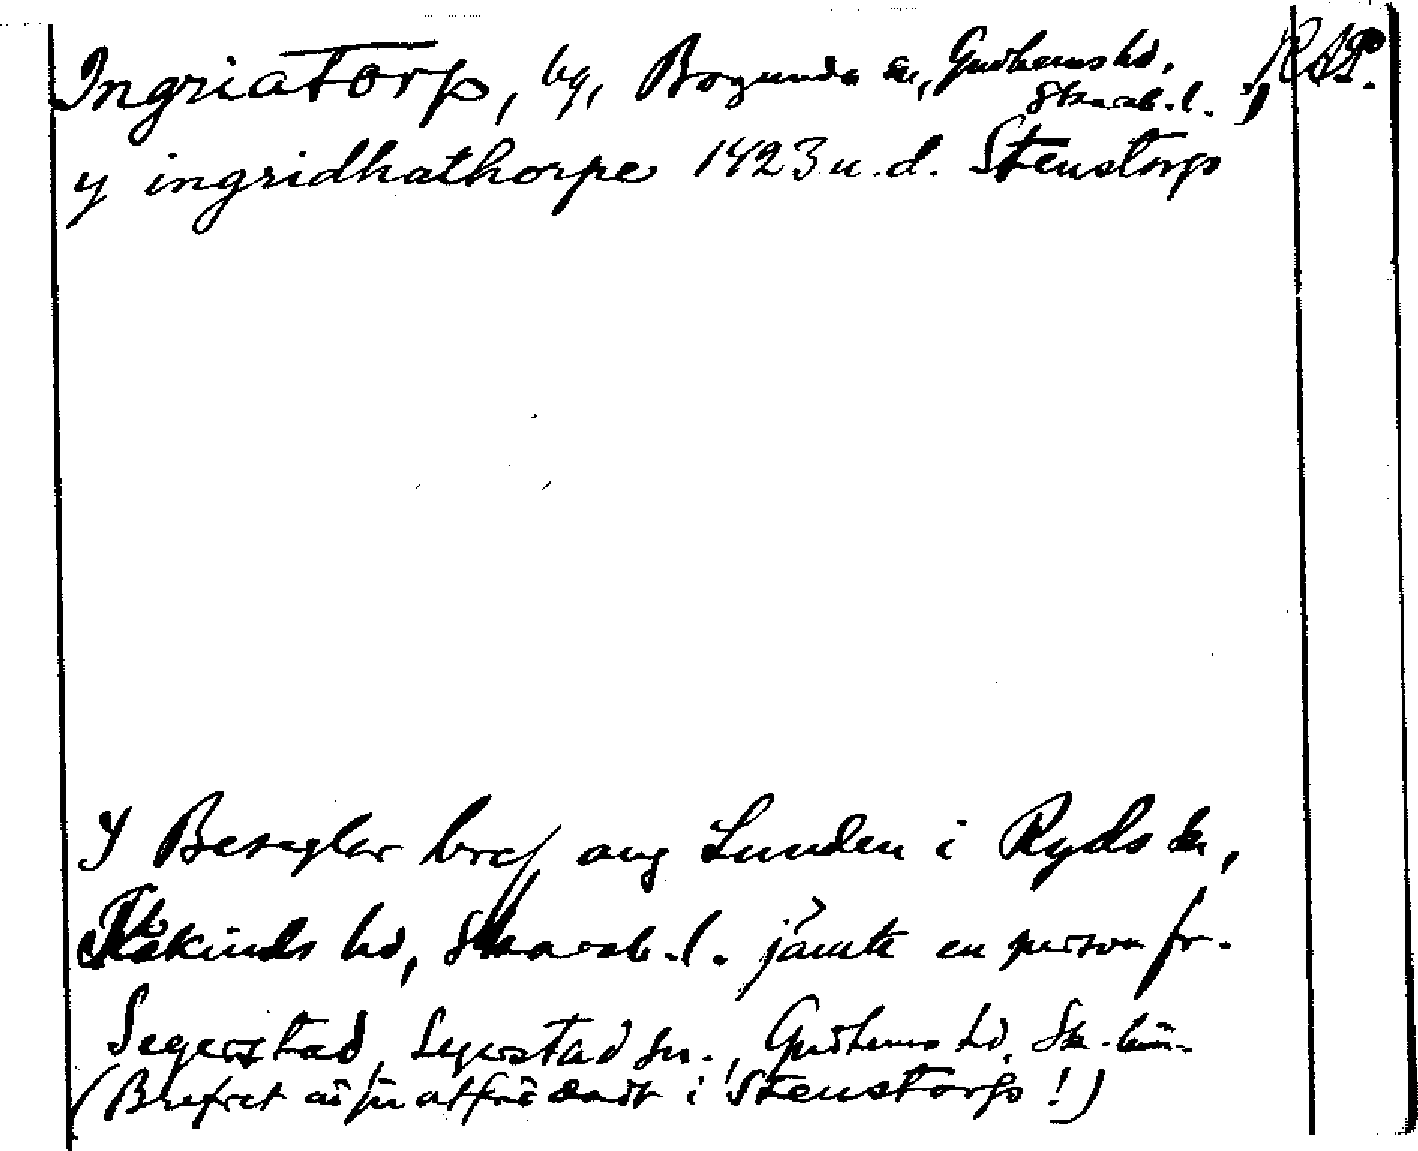 Ingriatorp, by, Borgunda sn, Gudhems hd, RAP.
Skarab. l.
y ingridhathorpe 1423 u.d. Stenstorp
y Beseglar bref ang Lunden i Ryds sn,
Kåkinds hd, Skarab. l. jämte en person fr.
Segerstad, Segerstad sn., Gudhems hd, Sk. län.
(Brefvet är ju utfärdadt i Stenstorp!)